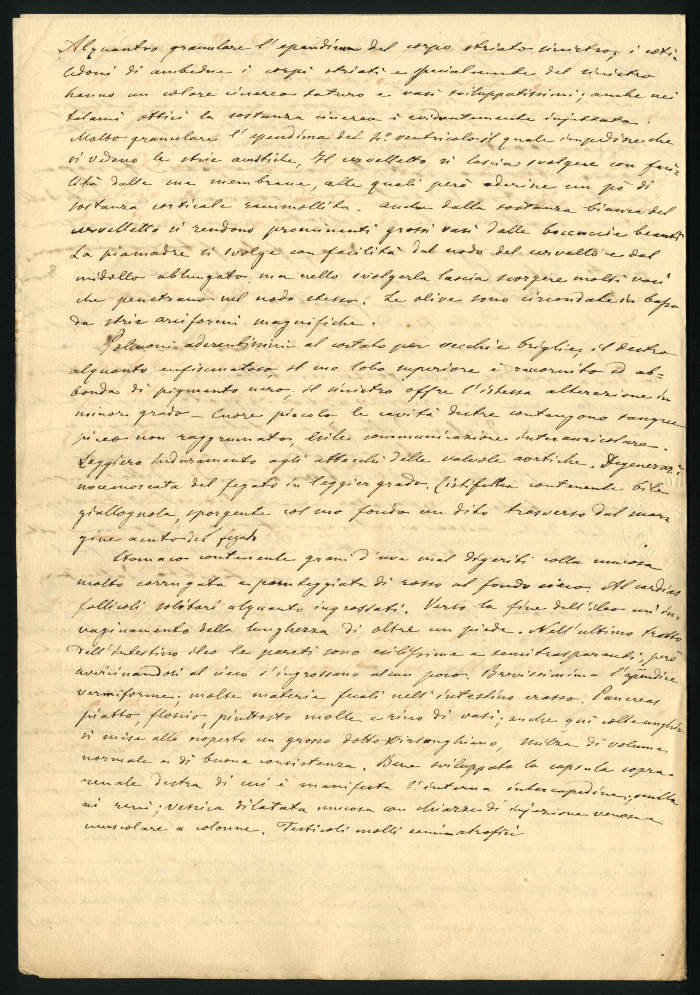 Alquanto granulare l'ependima del corpo striato sinistro; i coti-
ledoni di ambedue i corpi striati e specialmente del sinistro
hanno un colore cinereo saturo e vasi sviluppatissimi; anche nei
talami ottici la sostanza cinerea è evidentemente injettata.
Molto granulare l'ependima del 4° ventricolo il quale impedisce che
si vedano le strie acustiche. Il cervelletto si lascia svolgere con faci-
lità dalle sue membrane, alle quali però aderisce un pò di
sostanza corticale rammollita. Anche dalla sostanza bianca del
cervelletto si rendono prominenti grossi vasi dalle boccuccie beanti
La piamadre si svolge con facilità dal nodo del cervello e dal
midollo oblungato, ma nello svolgerla lascia scorgere molti vasi
che penetrano nel nodo stesso. Le olive sono circondate in basso
da strie arciformi magnifiche.
Polmoni aderentissimi al costato per vecchie briglie; il destro
alquanto enfisematoso, il suo lobo superiore è raccornito ed ab-
bonda di pigmento nero, il sinistro offre l'istessa alterazione in
minor grado – Cuore piccolo le cavità destre contengono sangue
piceo non raggrumato, Esile communicazione interauricolare.
Leggiero induramento agli attacchi delle valvole aortiche. Degeneraz.e
nocemoscata del fegato in leggier grado. Cistifellea contenente bile
giallognola, sporgente col suo fondo un dito trasverso dal mar-
gine acuto del fegato
Stomaco contenente grani d'uva mal digeriti colla mucosa
molto corrugata e punteggiata di rosso al fondo cieco. Al cardias
follicoli solitari alquanto ingrossati. Verso la fine dell'ileo un in-
vaginamento della lunghezza di oltre un piede. Nell'ultimo tratto
dell'intestino ileo le pareti sono esilissime e semitrasparenti, però
avvicinandosi al cieco s'ingrossano alcun poco. Brevissima l'apendice
vermiforme; molte materie fecali nell'intestino crasso. Pancreas
piatto, floscio, piuttosto molle e ricco di vasi; anche qui colle unghie
si mise allo scoperto un grosso dotto Virsunghiano, milza di volume
normale e di buona consistenza. Bene sviluppata la capsula sopra-
renale destra di cui è manifesta l'interna intercapedine; nulla
ai reni; vescica dilatata mucosa con chiazze di injezione venosa e
muscolare a colonne. Testicoli molli semiatrofici